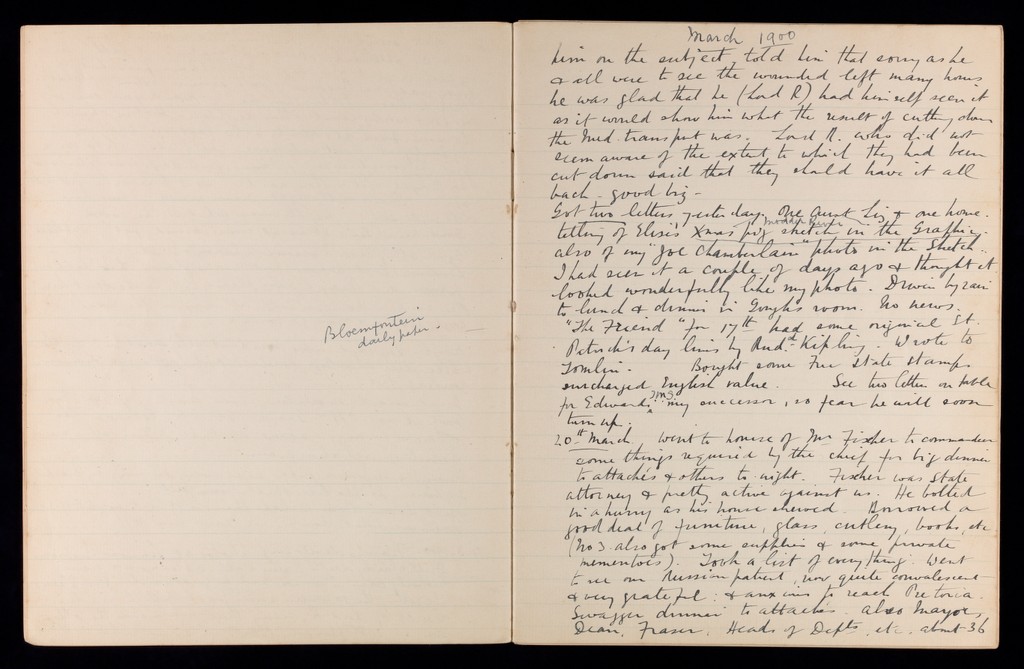 Bloemfontein
daily paper.
March 1900
him on the subject, told him that sorry as he
& all were to see the wounded left many hours
he was glad that he (Lord R) had himself seen it
as it would show him what the result of cutting down
the Med. transport was. Lord R. who did not
seem aware of the extent to which they had been
cut down said that they should have it all
back - good biz -
Got two letters yesterday, one Aunt Liz & one home.
Modder River
telling of Elsie's Xmas pig sketch in the Graphic
also of my "Joe Chamberlain" photo in the Sketch.
I had seen it a couple of days ago & thought it
looked wonderfully like my photo. Driven by rain
to lunch & dinner in Gough's room. No news.
"The Friend" for 17th had some original St.
Patrick's day lines by Rudd Kipling. Wrote to
Tomlin. Bought some Free State Stamps
surcharged English value. See two letters on table
for Edwards, my successor, so fear he will soon
turn up.
20th March. Went to house of Mr Fischer to commandeer
some things required by the chief for big dinner
to attachés & others to-night. Fischer was State
attorney & pretty active against us. He bolted
in a hurry as his house showed. Borrowed a
good deal of furniture, glass, cutlery, books, etc
(No 3 also got some supplies & some private
mementoes). Took a list of everything. Went
to see our Russian patient, now quite convalescent
& very grateful: & anxious to reach Pretoria.
Swagger dinner to attachés also Mayor,
Dean, Fraser, Heads of Depts, etc. about 36